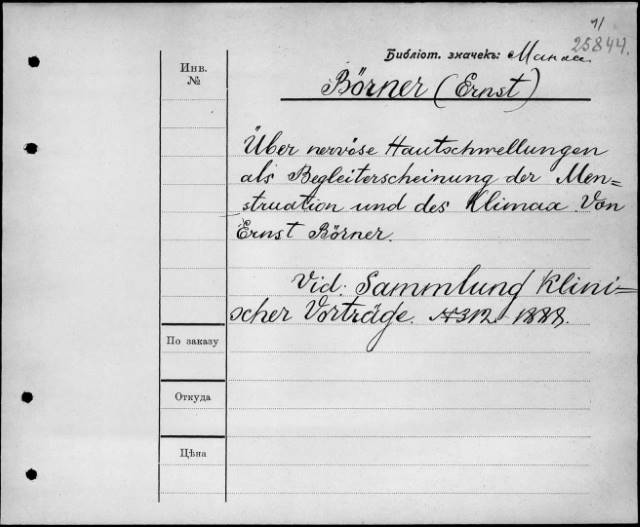 1/
25844.
Библіот. значекъ:
Инв.
№
Börner (Ernst)
Über nervöse Hautschwellungen
als Begleiterscheinung der Men=
struation und des Klimax. Von
Ernst Börner.
Vid: Sammlung klini=
scher Vorträge. №312 1888.
По заказу
Откуда
Цѣна